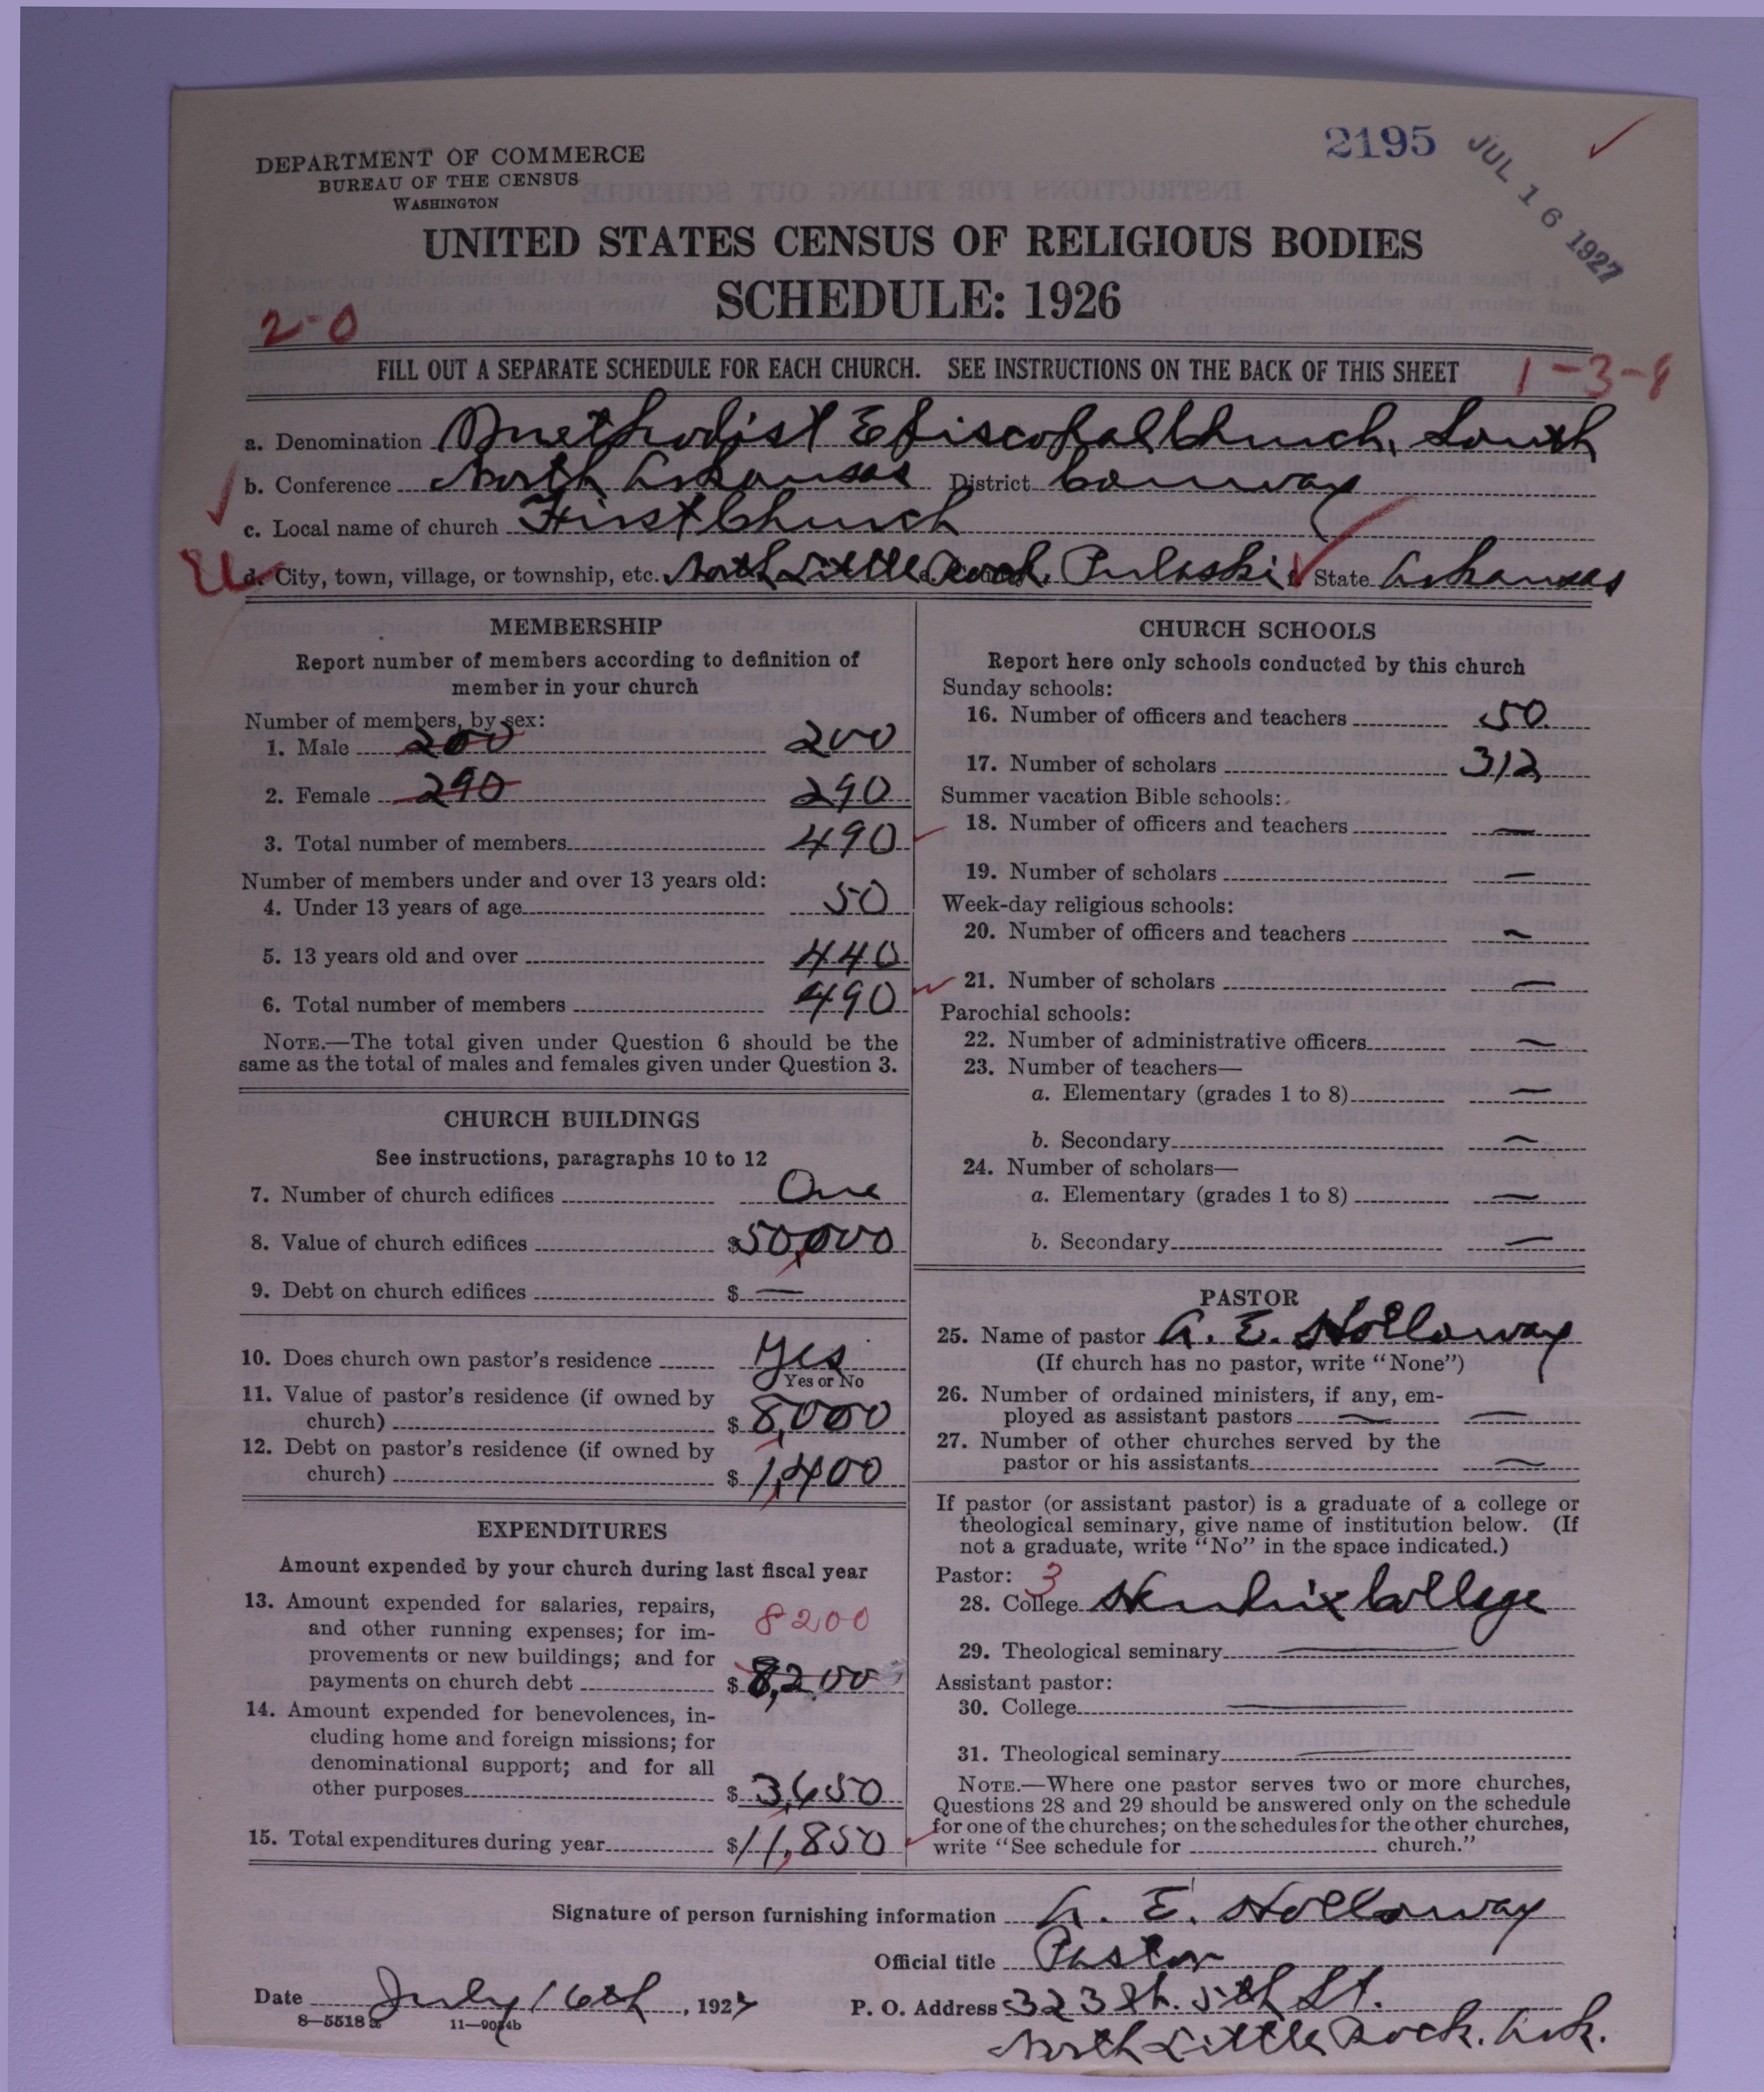 2195
JUL 16 1927
DEPARTMENT OF COMMERCE
BUREAU OF THE CENSUS
WASHINGTON
UNITED STATES CENSUS OF RELIGIOUS BODIES
SCHEDULE: 1926
2-0
FILL OUT A SEPARATE SCHEDULE FOR EACH CHURCH. SEE INSTRUCTIONS ON THE BACK OF THIS SHEET
1-3-8
a. Denomination Methodist Episcopal Church, South
b. Conference North Arkansas District Conway
c. Local name of church First Church
d. City, town, village, or township, etc. North Little Rock, Pulaski State Arkansas
MEMBERSHIP
Report number of members according to definition of
member in your church
Number of members, by sex:
1. Male 200 200
2. Female 290 290
3. Total number of members 490
Number of members under and over 13 years old:
4. Under 13 years of age 50
5. 13 years old and over 440
6. Total number of members 490
NOTE.—The total given under Question 6 should be the
same as the total of males and females given under Question 3.
CHURCH BUILDINGS
See instructions, paragraphs 10 to 12
7. Number of church edifices One
8. Value of church edifices $50,000
9. Debt on church edifices $ —
10. Does church own pastor's residence Yes
Yes or No
11. Value of pastor's residence (if owned by
church) $ 8,000
12. Debt on pastor's residence (if owned by
church) $ 1,400
EXPENDITURES
Amount expended by your church during last fiscal year
13. Amount expended for salaries, repairs,
and other running expenses; for im-
8200
provements or new buildings; and for
payments on church debt $ 8,200
14. Amount expended for benevolences, in-
cluding home and foreign missions; for
denominational support; and for all
other purposes $ 3,650
15. Total expenditures during year $11,850
CHURCH SCHOOLS
Report here only schools conducted by this church
Sunday schools:
16. Number of officers and teachers 50
17. Number of scholars 312
Summer vacation Bible schools:
18. Number of officers and teachers —
19. Number of scholars —
Week-day religious schools:
20. Number of officers and teachers —
21. Number of scholars —
Parochial schools:
22. Number of administrative officers —
23. Number of teachers—
a. Elementary (grades 1 to 8) —
b. Secondary —
24. Number of scholars—
a. Elementary (grades 1 to 8) —
b. Secondary —
PASTOR
25. Name of pastor A. E. Holloway
(If church has no pastor, write "None")
26. Number of ordained ministers, if any, em-
ployed as assistant pastors — —
27. Number of other churches served by the
pastor or his assistants —
If pastor (or assistant pastor) is a graduate of a college or
theological seminary, give name of institution below. (If
not a graduate, write "No" in the space indicated.)
Pastor: 3
28. College Hendrix College
29. Theological seminary —
Assistant pastor:
30. College —
31. Theological seminary —
NOTE.—Where one pastor serves two or more churches,
Questions 28 and 29 should be answered only on the schedule
for one of the churches; on the schedules for the other churches,
write "See schedule for church."
Signature of person furnishing information A. E. Holloway
Official title Pastor
Date July 16th, 1927 P. O. Address 323 5th St.
8—5518a 11—9054b
North Little Rock. Ark.